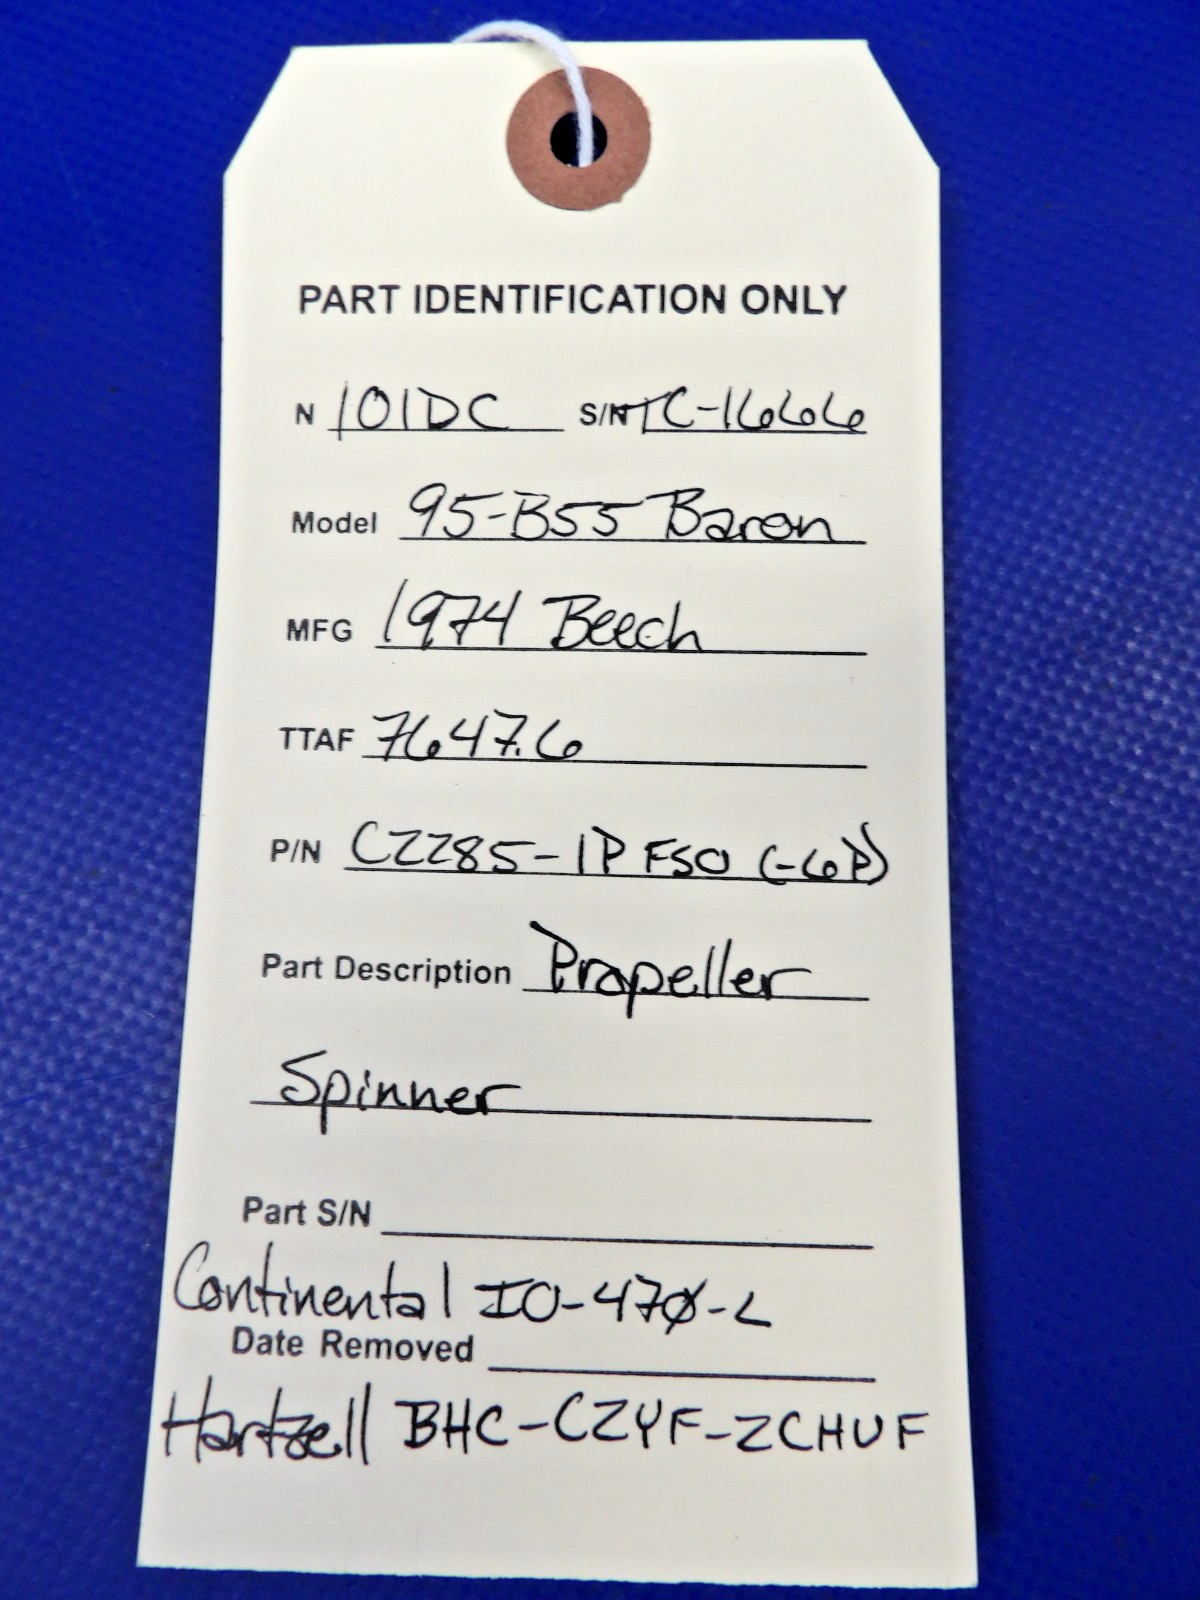 PART IDENTIFICATION ONLY
N 101DC S/N TC-1666
Model 95-B55 Baron
MFG 1974 Beech
TTAF 7647.6
P/N C2285-1P FSO (-6P)
Part Description Propeller
Spinner
Part S/N
Continental IO-470-L
Date Removed
Hartzell BHC-C2YF-2CHUF